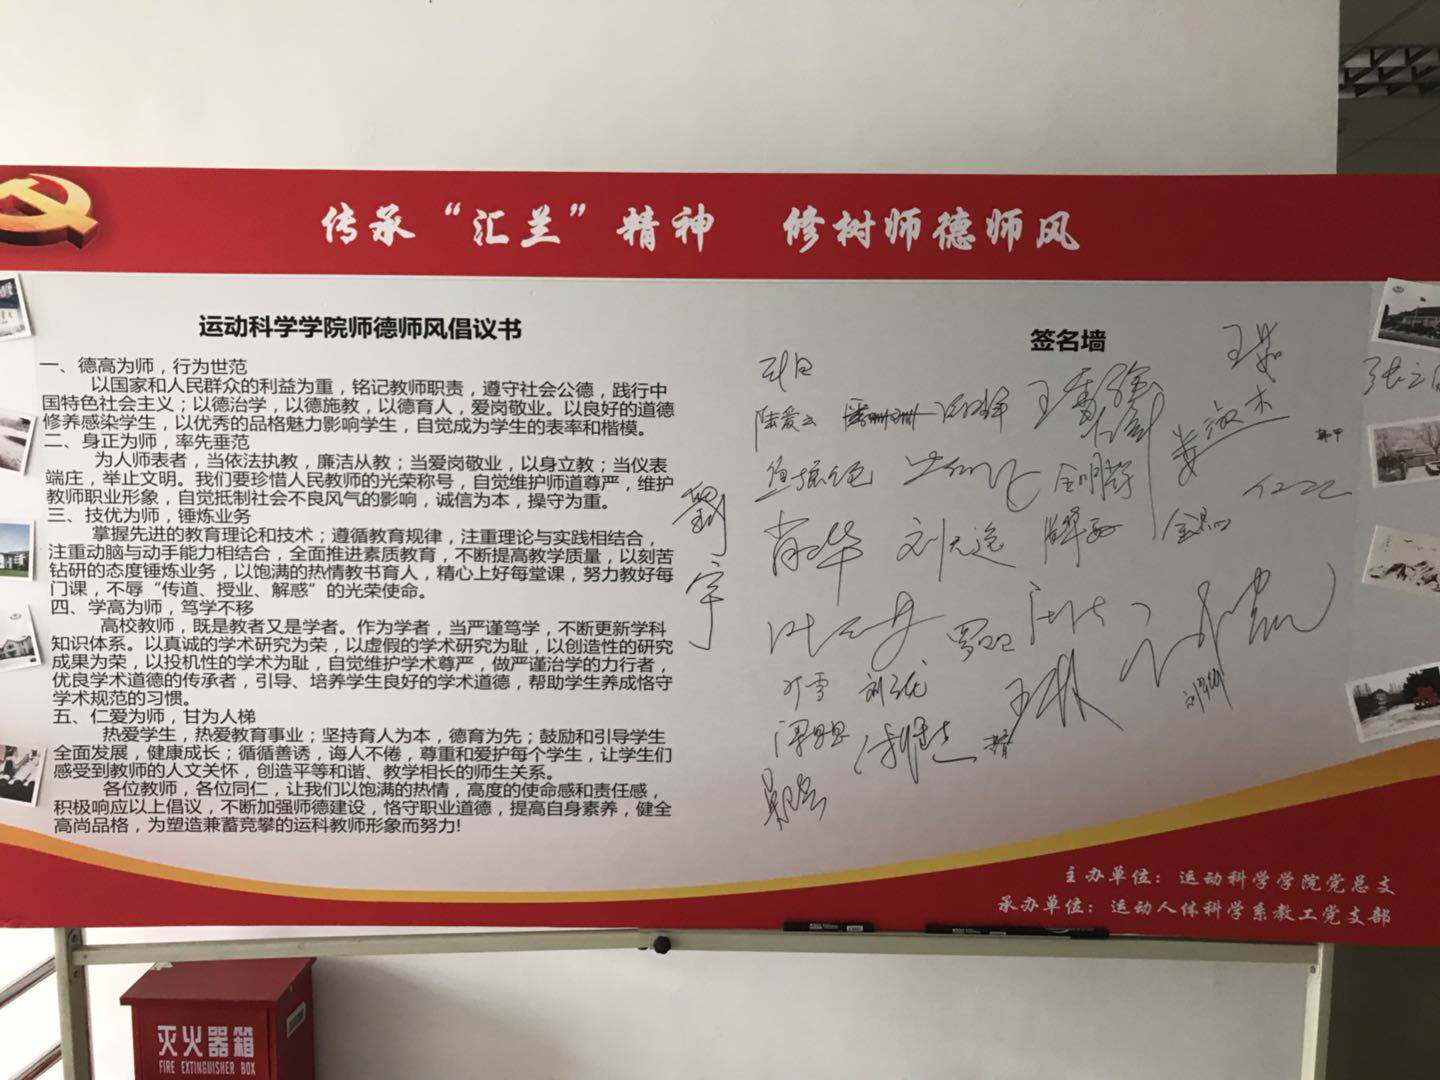 传承“汇兰”精神 修树师德师风
运动科学学院师德师风倡议书
一、德高为师，行为世范
以国家和人民群众的利益为重，铭记教师职责，遵守社会公德，践行中
国特色社会主义；以德治学，以德施教，以德育人，爱岗敬业。以良好的道德
修养感染学生，以优秀的品格魅力影响学生，自觉成为学生的表率和楷模。
二、身正为师，率先垂范
为人师表者，当依法执教，廉洁从教；当爱岗敬业，以身立教；当仪表
端庄，举止文明。我们要珍惜人民教师的光荣称号，自觉维护师道尊严，维护
教师职业形象，自觉抵制社会不良风气的影响，诚信为本，操守为重。
三、技优为师，锤炼业务
掌握先进的教育理论和技术；遵循教育规律，注重理论与实践相结合，
注重动脑与动手能力相结合，全面推进素质教育，不断提高教学质量，以刻苦
钻研的态度锤炼业务，以饱满的热情教书育人，精心上好每堂课，努力教好每
门课，不辱“传道、授业、解惑”的光荣使命。
四、学高为师，笃学不移
高校教师，既是教者又是学者。作为学者，当严谨笃学，不断更新学科
知识体系。以真诚的学术研究为荣，以虚假的学术研究为耻，以创造性的研究
成果为荣，以投机性的学术为耻，自觉维护学术尊严，做严谨治学的力行者，
优良学术道德的传承者，引导、培养学生良好的学术道德，帮助学生养成恪守
学术规范的习惯。
五、仁爱为师，甘为人梯
热爱学生，热爱教育事业；坚持育人为本，德育为先；鼓励和引导学生
全面发展，健康成长；循循善诱，诲人不倦，尊重和爱护每个学生，让学生们
感受到教师的人文关怀，创造平等和谐、教学相长的师生关系。
各位教师，各位同仁，让我们以饱满的热情，高度的使命感和责任感，
积极响应以上倡议，不断加强师德建设，恪守职业道德，提高自身素养，健全
高尚品格，为塑造兼蓄竞攀的运科教师形象而努力!
签名墙
陆爱云
刘宇
肖华
王林
主办单位：运动科学学院党总支
承办单位：运动人体科学系教工党支部
灭火器箱
FIRE EXTINGUISHER BOX